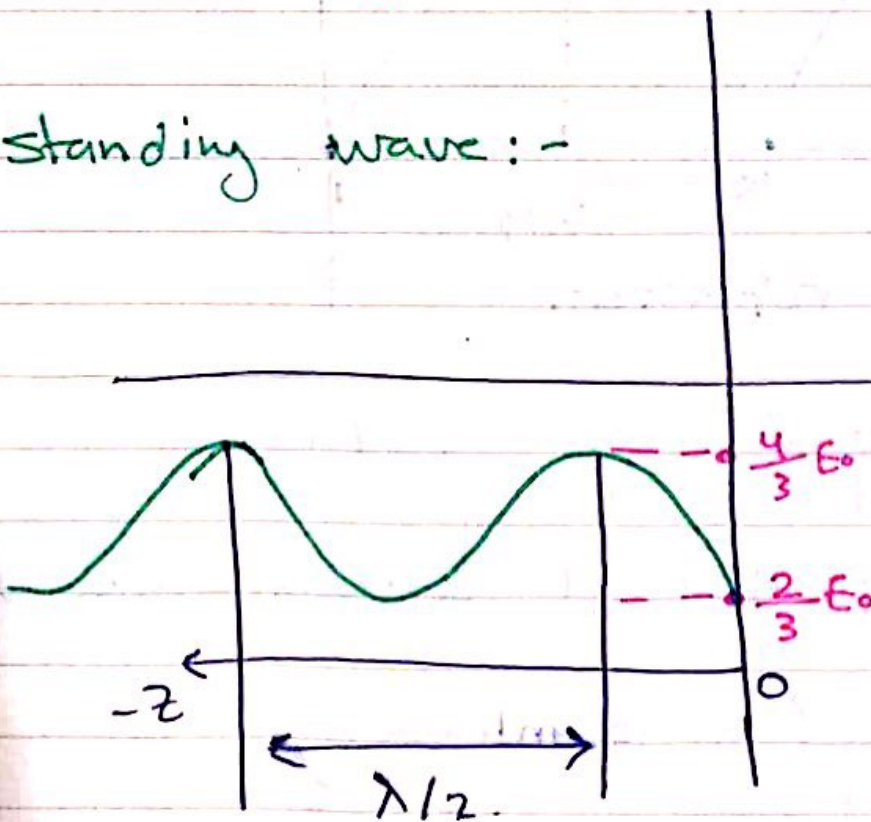 standing wave:-
4/3 E₀
2/3 E₀
-z
0
λ/2.